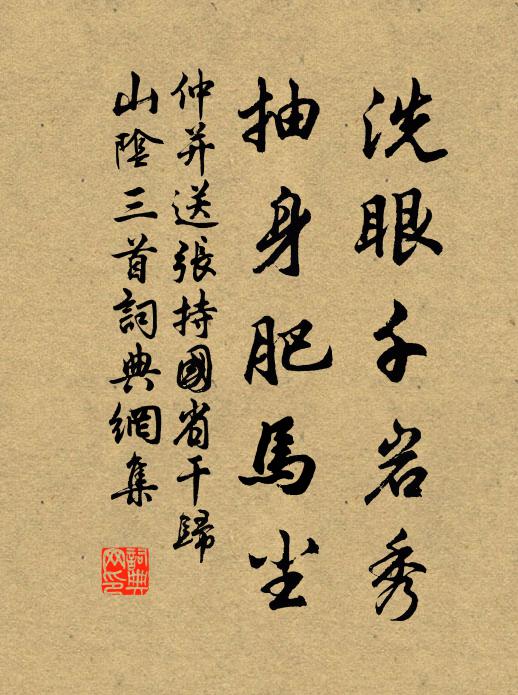 洗眼千岩秀
抽身肥馬尘
仲并送張持國省干歸
山陰三首詞典網集
詞典网印